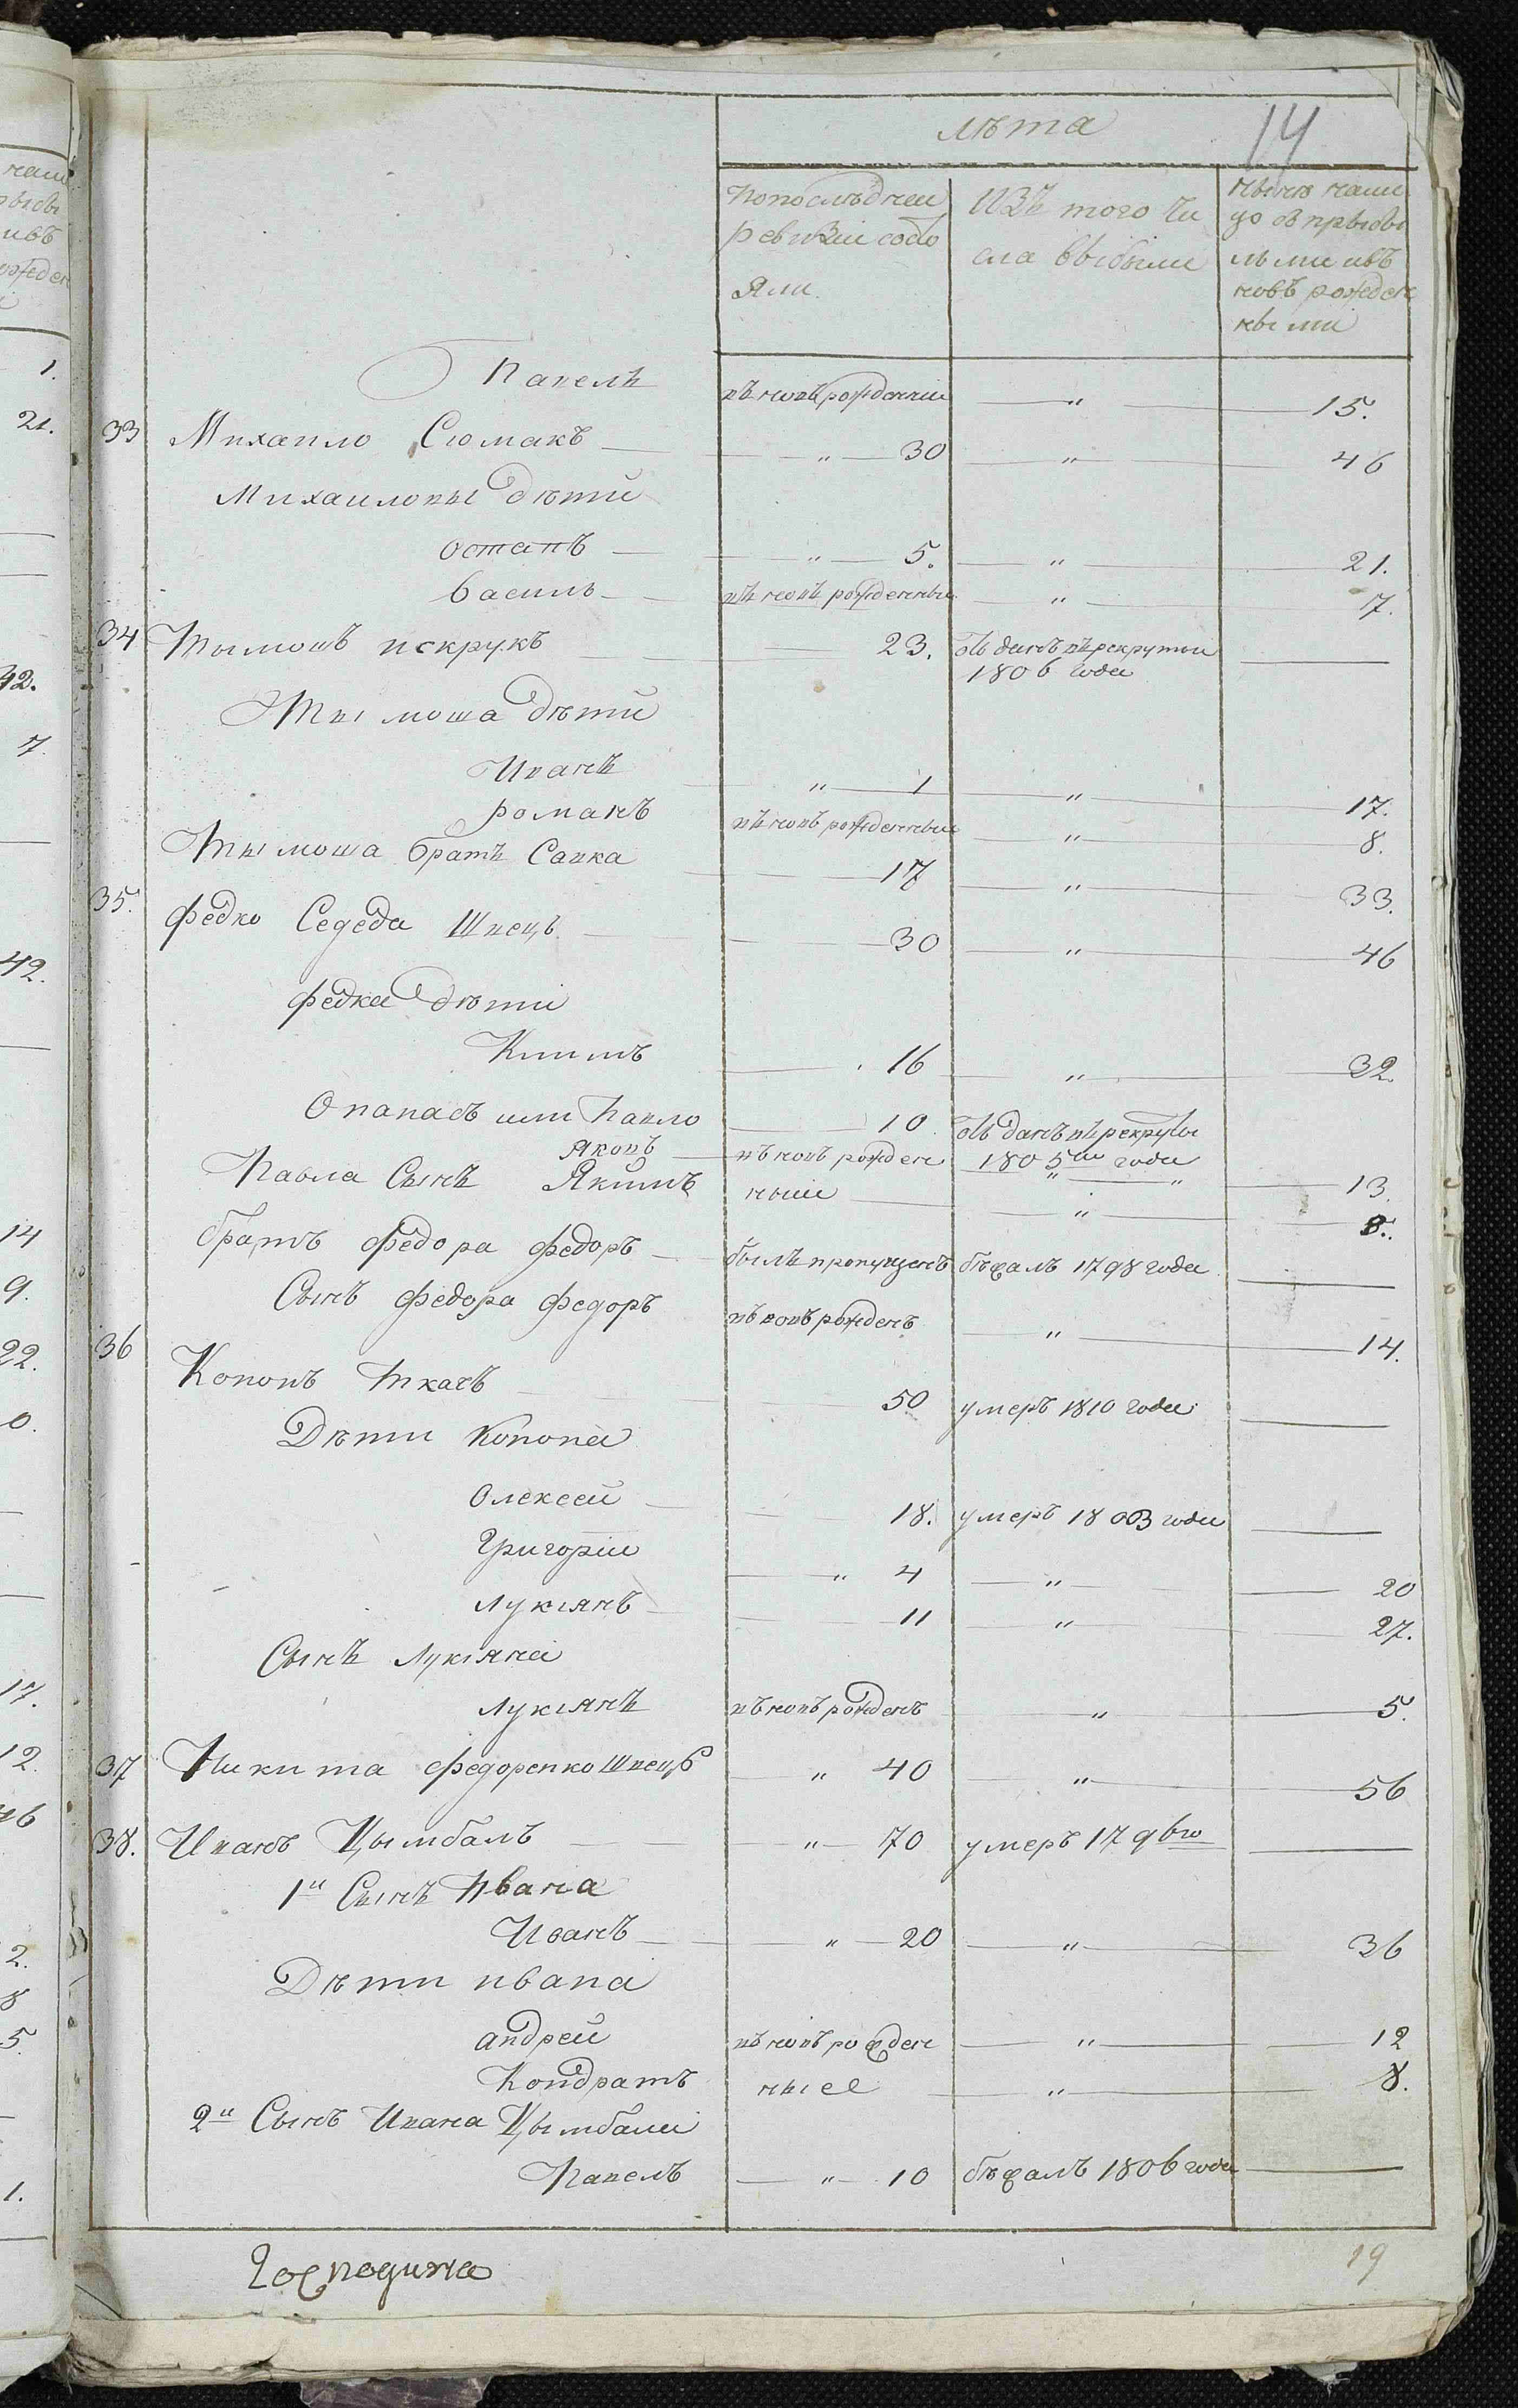 лѣта 14
попослѣднеи
ревизіи состо
яли
изъ того чи
сла выбыли
нынѣ нали
цо съ прыбы
лыми ивъ
новь рожден
ными
Павелъ въ новь рожденни " 15.
33 Михаило Сюмакъ " 30 " 46
Михаиловы дѣти
Остапъ " 5. " 21.
Василь въ новь рожденные " 7.
34 Тымошъ искрукъ 23. отданъ въ рекруты
1806 года
Тымоша дѣти
Иванъ " 1 " 17.
романъ въ новь рожденные " 8.
Тымоша братъ Савка 17 " 33.
35. Федко Середа Швецъ 30 " 46
Федка дѣти
Климъ 16 " 32.
Опанасъ или Павло 10. отданъ въ рекруты
Яковъ въ новь рожден 1805го года
Павла Сынъ Якимъ ныи " 13.
" 8.
братъ Федора Федоръ былъ пропущенъ бѣжалъ 1798 года
Сынъ Федора Федоръ въ новь рожденъ " 14.
36 Кононъ Ткачъ 50 умеръ 1810 года
Дѣти Конона
Олексеи 18. умеръ 1803 года
Григоріи " 4 " 20
Лукіянъ 11 " 27.
Сынъ Лукіяна
Лукіянъ въ новь рожденъ " 5.
37 Никита Федоренко Швецъ " 40 " 56
38. Иванъ Цымбалъ " 70 умеръ 1796го
1й Сынъ Ивана
Иванъ " 20 " 36
Дѣти ивана
андреи въ новь рожден " 12
Кондратъ ные " 8.
2й Сынъ Ивана Цымбала
Павелъ " 10 бѣжалъ 1806 года
Господина
19